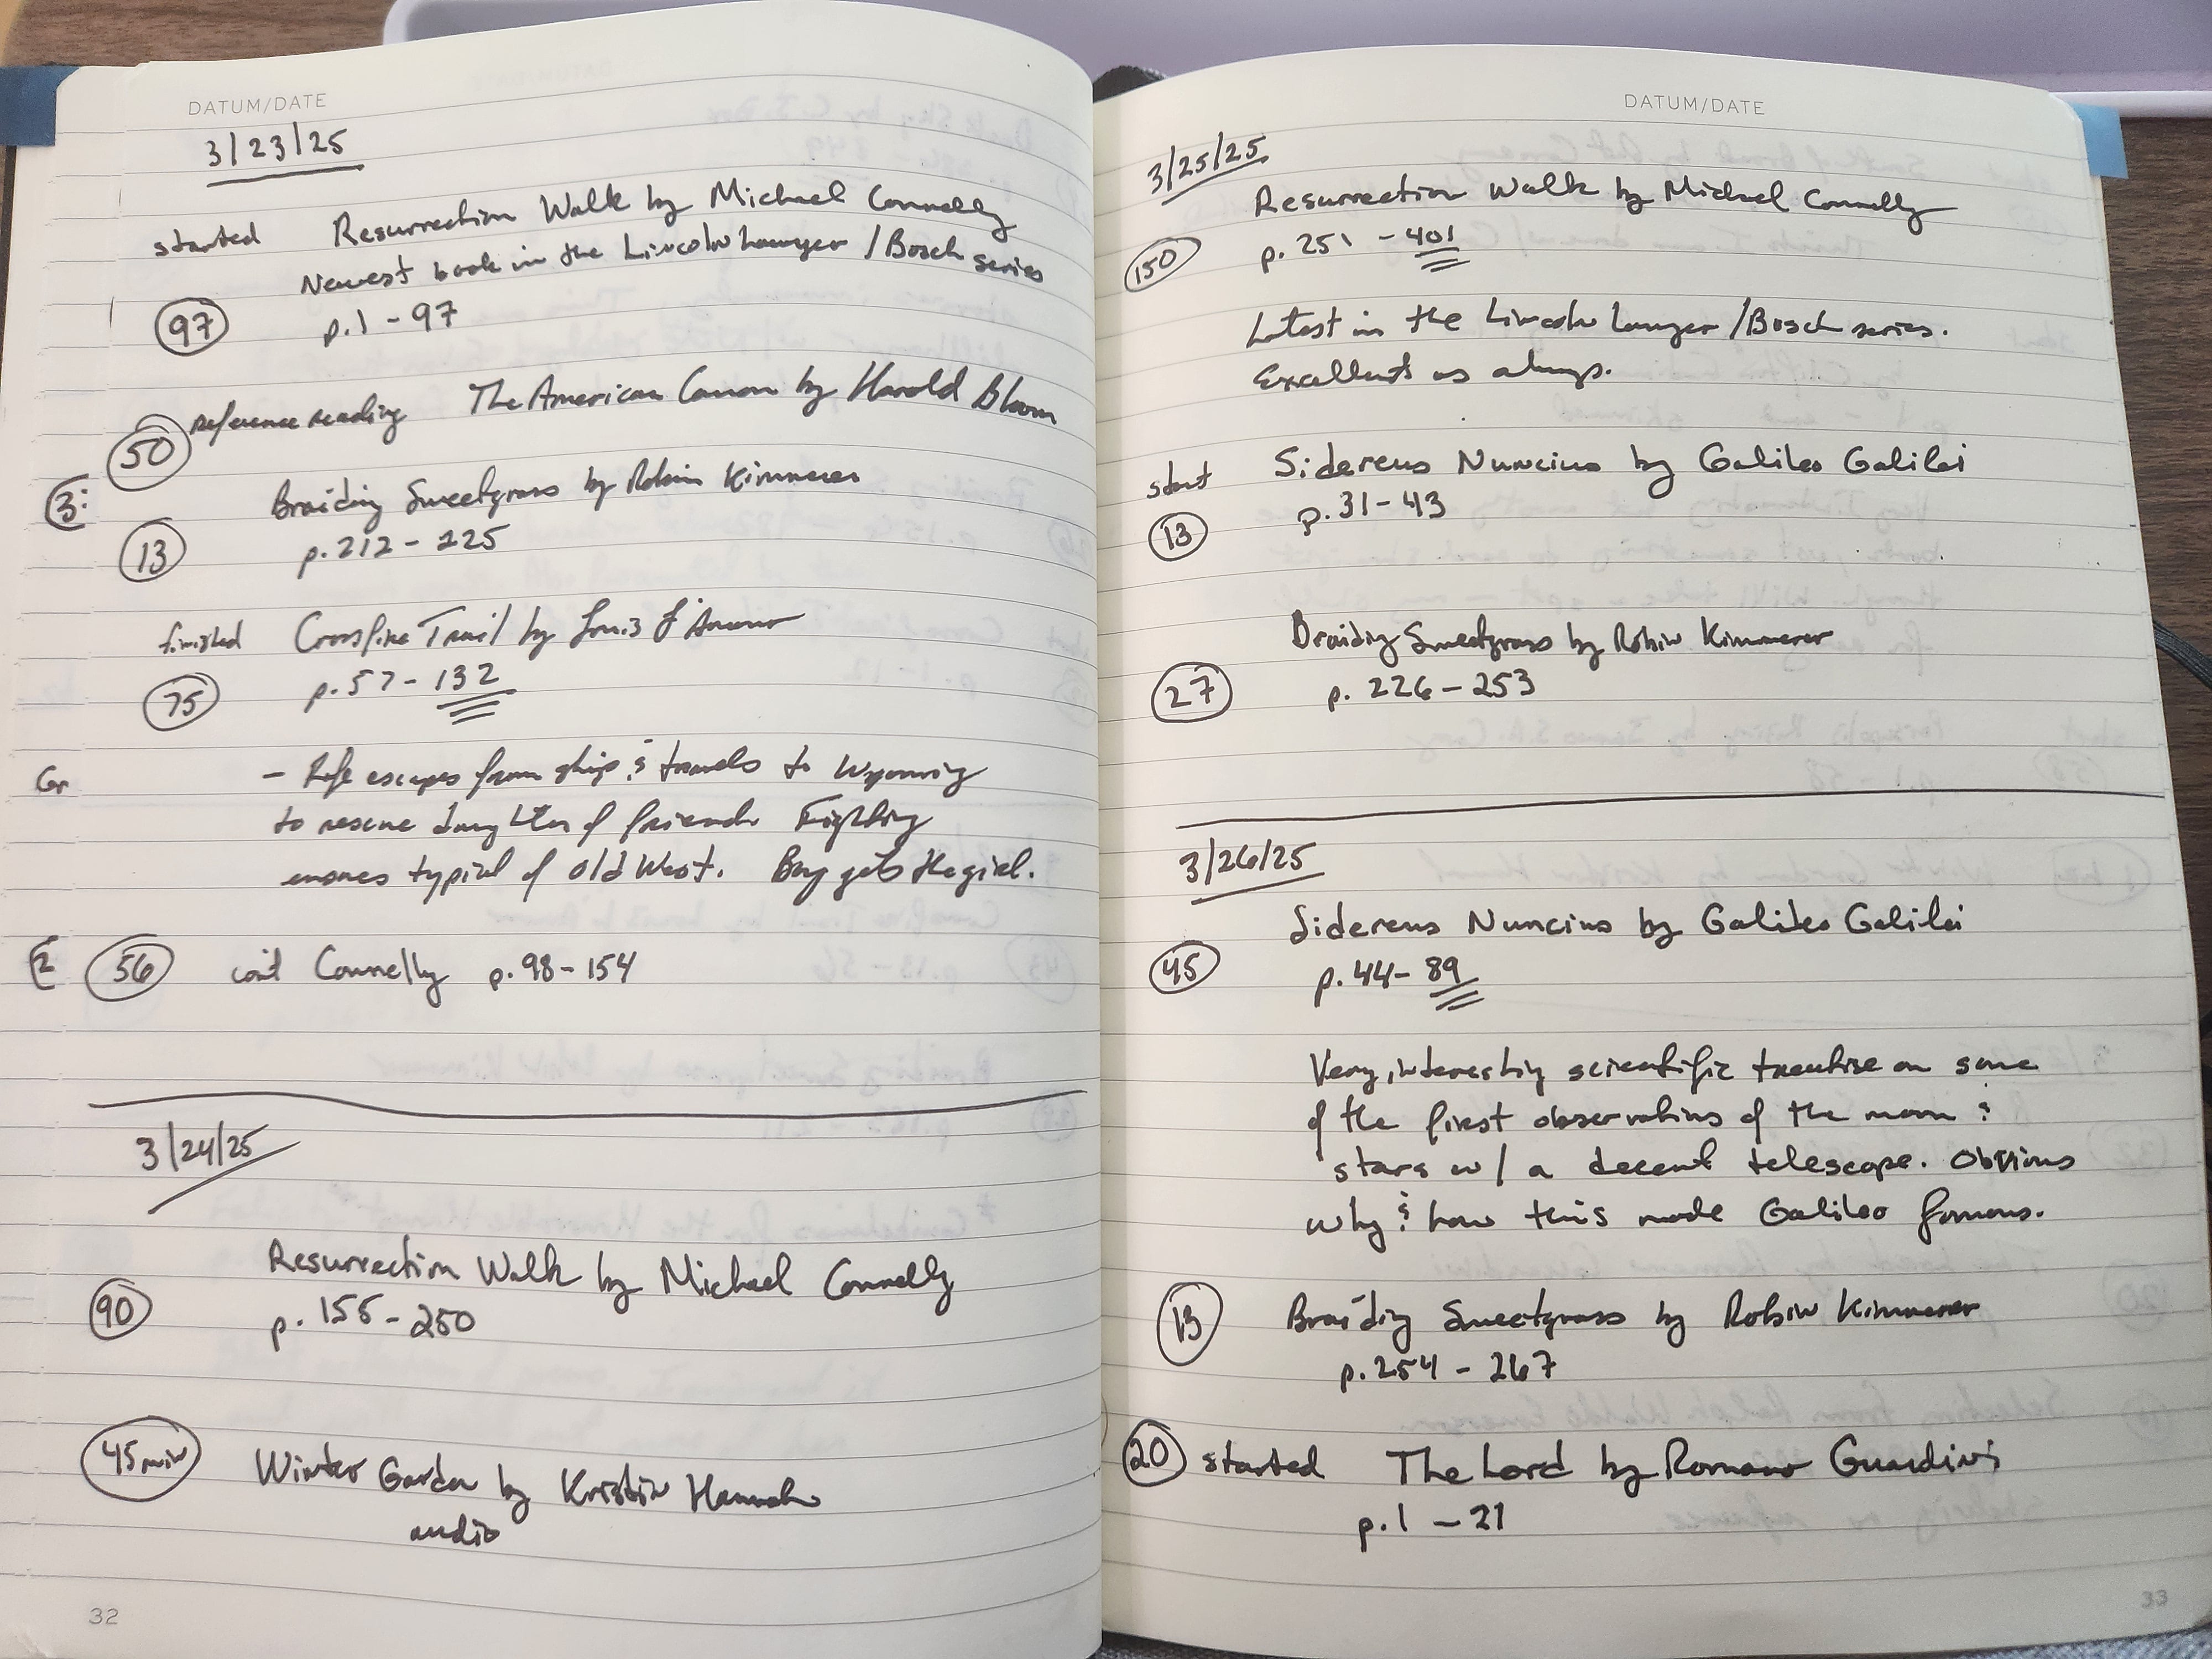 DATUM/DATE
3/23/25
started Resurrection Walk by Michael Connelly
Newest book in the Lincoln Lawyer / Bosch series
97 p. 1 - 97
reference reading The American Canon by Harold Bloom
50
Braiding Sweetgrass by Robin Kimmerer
13 p. 212 - 225
finished Crossfire Trail by Louis L'Amour
75 p. 57 - 132
- Rafe escapes from ship & travels to Wyoming
to rescue daughter of friend. Fighting
ensues typical of Old West. Boy gets the girl.
56 con't Connelly p. 98 - 154
3/24/25
Resurrection Walk by Michael Connelly
90 p. 155 - 250
45 min Winter Garden by Kristin Hannah
audio
32
DATUM/DATE
3/25/25
Resurrection Walk by Michael Connelly
150 p. 251 - 401
Latest in the Lincoln Lawyer / Bosch series.
Excellent as always.
start Sidereus Nuncius by Galileo Galilei
13 p. 31 - 43
Braiding Sweetgrass by Robin Kimmerer
27 p. 226 - 253
3/26/25
Sidereus Nuncius by Galileo Galilei
45 p. 44 - 89
Very interesting scientific treatise on some
of the first observations of the moon &
stars w/ a decent telescope. Obvious
why & how this made Galileo famous.
13 Braiding Sweetgrass by Robin Kimmerer
p. 254 - 267
20 started The Lord by Romano Guardini
p. 1 - 21
33